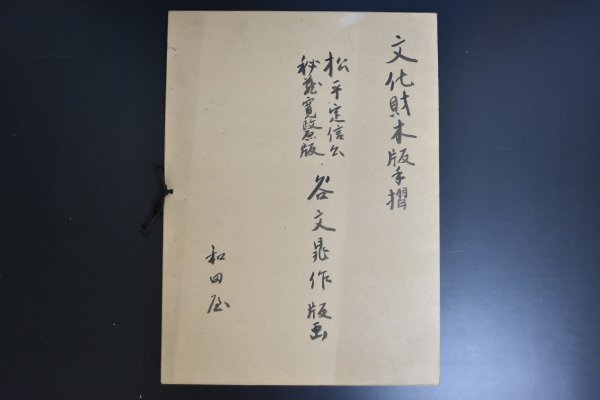 文化財木版手摺
松平定信公
秘蔵寛政原版
谷文晁作版画
和田屋